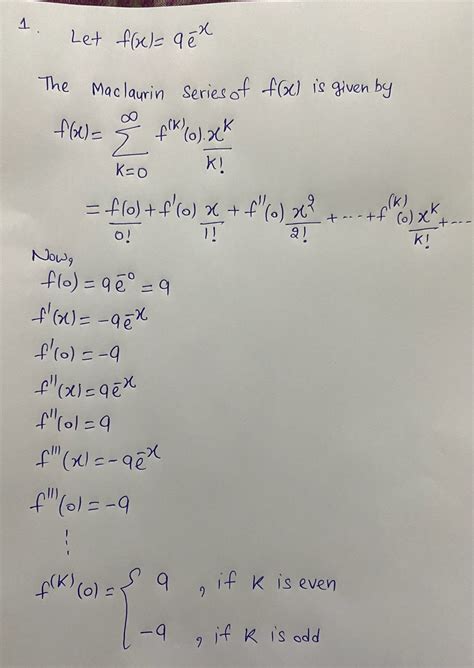 1.
Let f(x) = 9e^{-x}
The Maclaurin Series of f(x) is given by
f(x) = \sum_{K=0}^{\infty} f^{(K)}(0) \cdot \frac{x^K}{K!}
= \frac{f(0)}{0!} + f'(0) \frac{x}{1!} + f''(0) \frac{x^2}{2!} + ---- + f^{(K)}(0) \frac{x^K}{K!} + ----
Now,
f(0) = 9e^{-0} = 9
f'(x) = -9e^{-x}
f'(0) = -9
f''(x) = 9e^{-x}
f''(0) = 9
f'''(x) = -9e^{-x}
f'''(0) = -9
⋮
f^{(K)}(0) = { 9 , if K is even
-9 , if K is odd